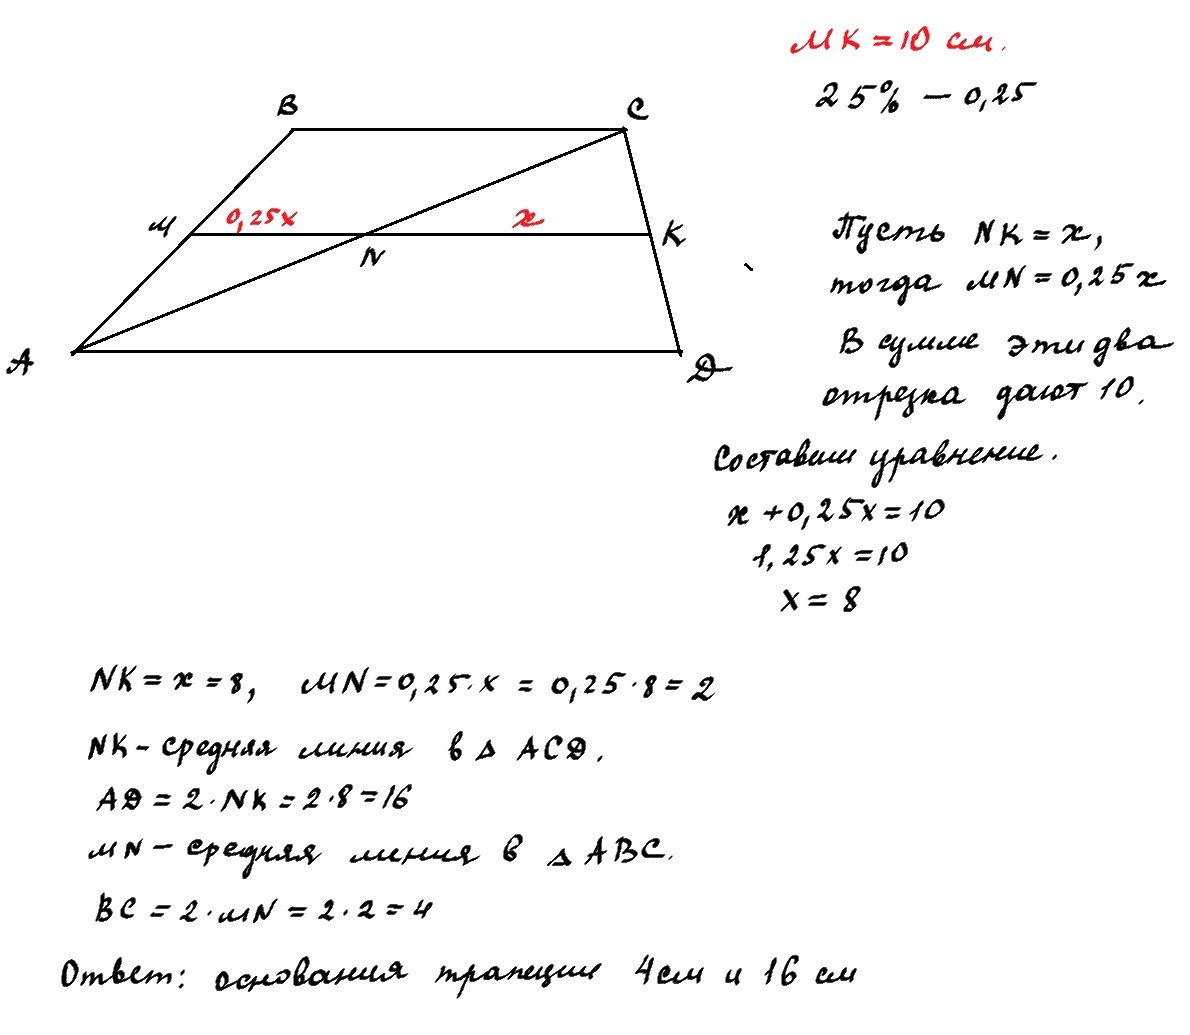 MK = 10 см.
25% — 0,25
B
C
M
0,25x
x
N
K
A
D
Пусть NK = x,
тогда MN = 0,25x
В сумме эти два
отрезка дают 10.
Составим уравнение.
x + 0,25x = 10
1,25x = 10
x = 8
NK = x = 8, MN = 0,25·x = 0,25·8 = 2
NK - средняя линия в Δ ACD.
AD = 2·NK = 2·8 = 16
MN — средняя линия в Δ ABC.
BC = 2·MN = 2·2 = 4
Ответ: основания трапеции 4см и 16 см